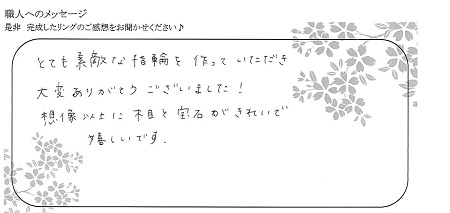 職人へのメッセージ
是非 完成したリングのご感想をお聞かせください♪
とても素敵な指輪を作っていただき
大変ありがとうございました！
想像以上に木目と宝石がきれいで
嬉しいです.